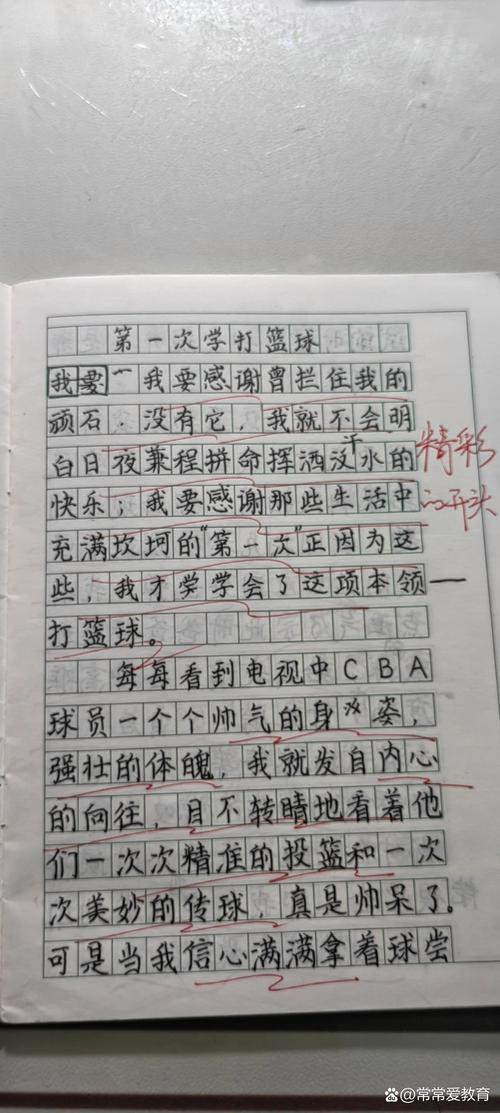 第一次学打篮球
我要 我要感谢曾拦住我的
顽石.没有它，我就不会明
白日夜兼程拼命挥洒汗水的
快乐；我要感谢那些生活中
充满坎坷的“第一次”正因为这
些，我才学学会了这项本领一
打篮球。
每每看到电视中CBA
球员一个个帅气的身姿，
强壮的体魄，我就发自内心
的向往，目不转睛地看着他
们一次次精准的投篮和一次
次美妙的传球，真是帅呆了。
可是当我信心满满拿着球尝
精彩
的开头
常常爱教育